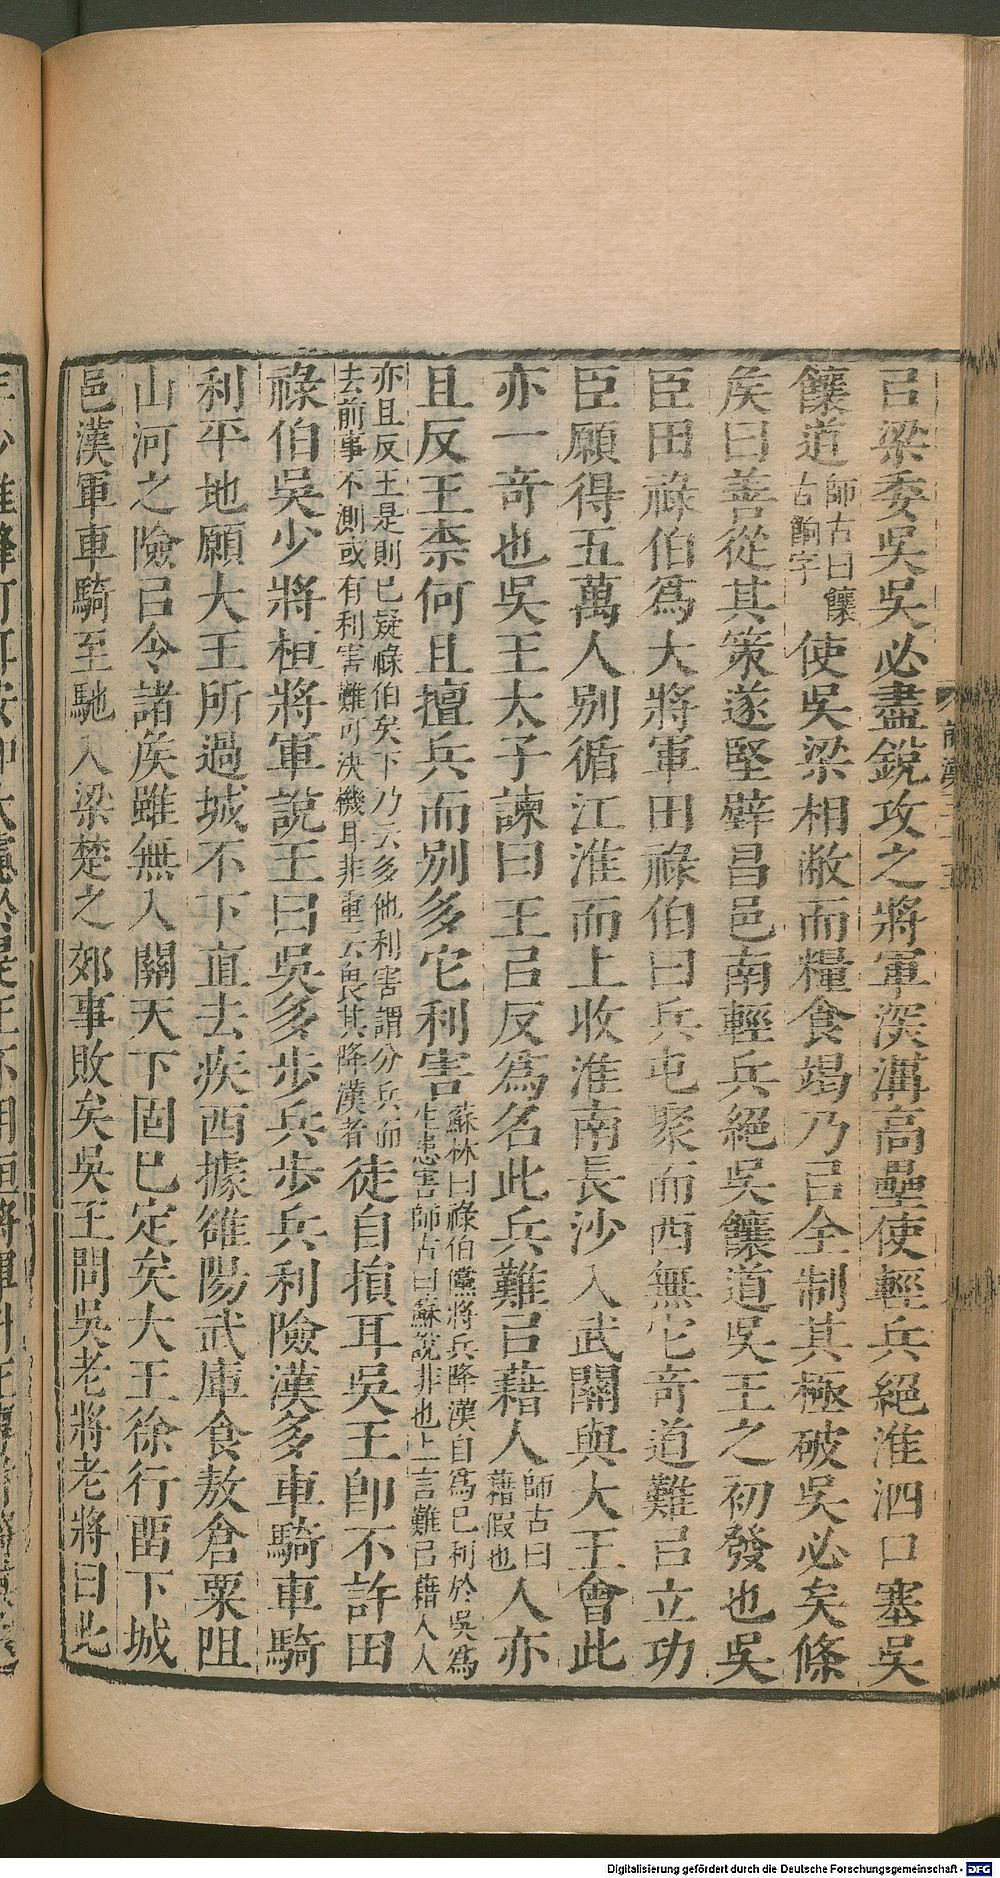 㠯梁委吳吳必盡銳攻之將軍深溝高壘使輕兵絕淮泗口塞吳
饟道師古曰饟古餉字使吳梁相敝而糧食竭乃㠯全制其極破吳必矣條
矦曰善從其策遂堅壁昌邑南輕兵絕吳饟道吳王之初發也吳
臣田祿伯爲大將軍田祿伯曰兵屯聚而西無它奇道難㠯立功
臣願得五萬人別循江淮而上收淮南長沙入武關與大王會此
亦一奇也吳王太子諫曰王㠯反爲名此兵難㠯藉人師古曰藉假也人亦
且反王柰何且擅兵而別多它利害蘇林曰祿伯儻將兵降漢自爲己利於吳爲生患害師古曰蘇說非也上言難㠯藉人人
亦且反王是則已疑祿伯矣下乃云多他利害謂分兵而去前事不測或有利害難可決機耳非重云畏其降漢者徒自損耳吳王卽不許田
祿伯吳少將桓將軍說王曰吳多步兵步兵利險漢多車騎車騎
利平地願大王所過城不下直去疾西據雒陽武庫食敖倉粟阻
山河之險㠯令諸矦雖無入關天下固已定矣大王徐行畱下城
邑漢軍車騎至馳入梁楚之郊事敗矣吳王問吳老將老將曰此
Digitalisierung gefördert durch die Deutsche Forschungsgemeinschaft - DFG